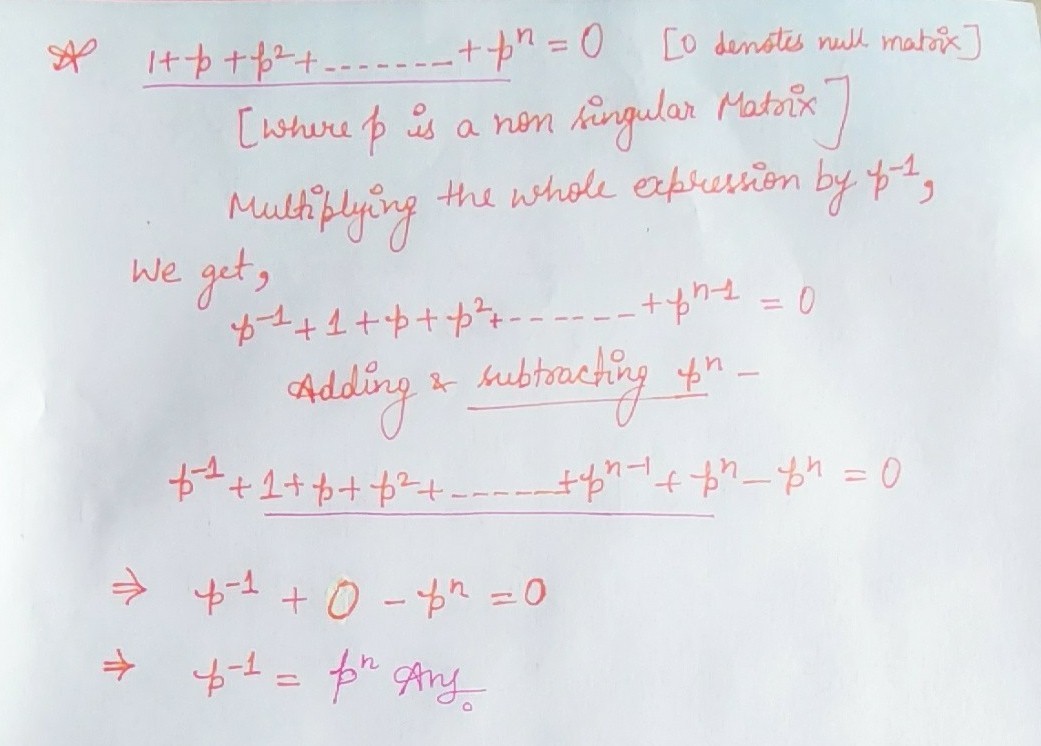 1+p+p²+.......+pⁿ = 0 [0 denotes null matrix]
[where p is a non singular Matrix]
Multiplying the whole expression by p⁻¹,
We get,
p⁻¹+1+p+p²+------+pⁿ⁻¹ = 0
Adding & subtracting pⁿ –
p⁻¹+1+p+p²+------+pⁿ⁻¹+pⁿ–pⁿ = 0
⇒ p⁻¹ + 0 – pⁿ = 0
⇒ p⁻¹ = pⁿ Ans.